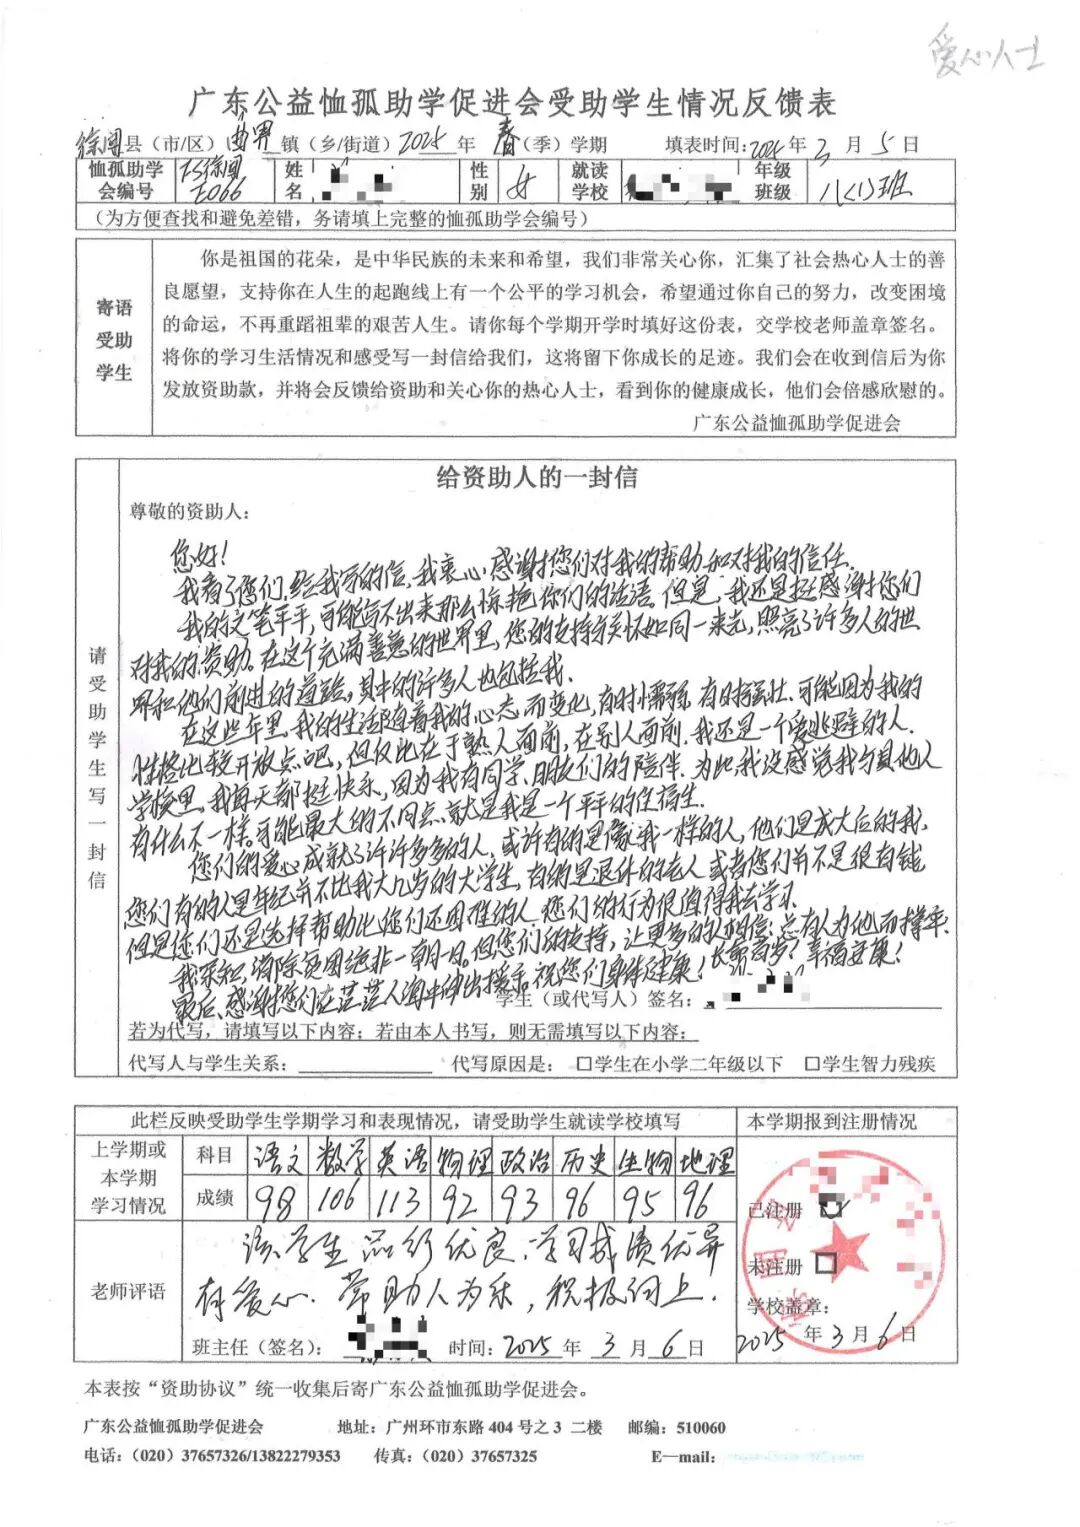 爱心人士
广东公益恤孤助学促进会受助学生情况反馈表
徐闻县（市/区）曲界镇（乡/街道）2025年 春（季）学期 填表时间：2025年3月5日
恤孤助学会编号 徐闻E066 姓名 性别 女 就读学校 年级班级 八(1)班
（为方便查找和避免差错，务请填上完整的恤孤助学会编号）
寄语受助学生
你是祖国的花朵，是中华民族的未来和希望，我们非常关心你，汇集了社会热心人士的善
良愿望，支持你在人生的起跑线上有一个公平的学习机会，希望通过你自己的努力，改变困境
的命运，不再重蹈祖辈的艰苦人生。请你每个学期开学时填好这份表，交学校老师盖章签名。
将你的学习生活情况和感受写一封信给我们，这将留下你成长的足迹。我们会在收到信后为你
发放资助款，并将会反馈给资助和关心你的热心人士，看到你的健康成长，他们会倍感欣慰的。
广东公益恤孤助学促进会
请受助学生写一封信
给资助人的一封信
尊敬的资助人：
您好！
我看了您们给我写的信，我衷心感谢您们对我的帮助和对我的信任.
我的文笔平平，可能写不出来那么惊艳你们的话语。但是，我还是挺感谢您们
对我的资助。在这个充满善意的世界里，您的支持与关怀如同一束光，照亮了许多人的世
界和他们前进的道路，其中的许多人也包括我.
在这些年里，我的生活随着我的心态而变化，有时懦弱，有时强壮.可能因为我的
性格比较开放点吧，但仅比在于熟人面前，在别人面前.我还是一个爱逃避的人.
学校里，我每天都挺快乐，因为我有同学、朋友们的陪伴.为此我没感觉我与其他人
有什么不一样。可能最大的不同点就是我是一个平平的住宿生.
您们的爱心成就了许许多多的人，或许有的是像我一样的人，他们是成大后的我，
您们有的人是年纪并不比我大几岁的大学生，有的是退休的老人，或者您们并不是很有钱
但是您们还是选择帮助比您们还困难的人.您们的行为很值得我去学习.
我深知，消除贫困绝非一朝一日。但您们的支持，让更多的人相信：总有人为他而撑伞.
最后、感谢您们在茫茫人海中伸出援手。祝您们身体健康！长命百岁！幸福安康！
学生（或代写人）签名：
若为代写，请填写以下内容；若由本人书写，则无需填写以下内容：
代写人与学生关系： 代写原因是： □学生在小学二年级以下 □学生智力残疾
此栏反映受助学生学期学习和表现情况，请受助学生就读学校填写 本学期报到注册情况
上学期或本学期学习情况
科目 语文 数学 英语 物理 政治 历史 生物 地理
成绩 98 106 113 92 93 96 95 96
已注册
未注册 □
学校盖章：
2025年3月6日
老师评语
该学生品行优良.学习成绩优异
有爱心.常助人为乐，积极向上.
班主任（签名）： 时间：2025年3月6日
本表按“资助协议”统一收集后寄广东公益恤孤助学促进会。
广东公益恤孤助学促进会 地址：广州环市东路404号之3 二楼 邮编：510060
电话：（020）37657326/13822279353 传真：（020）37657325 E—mail：